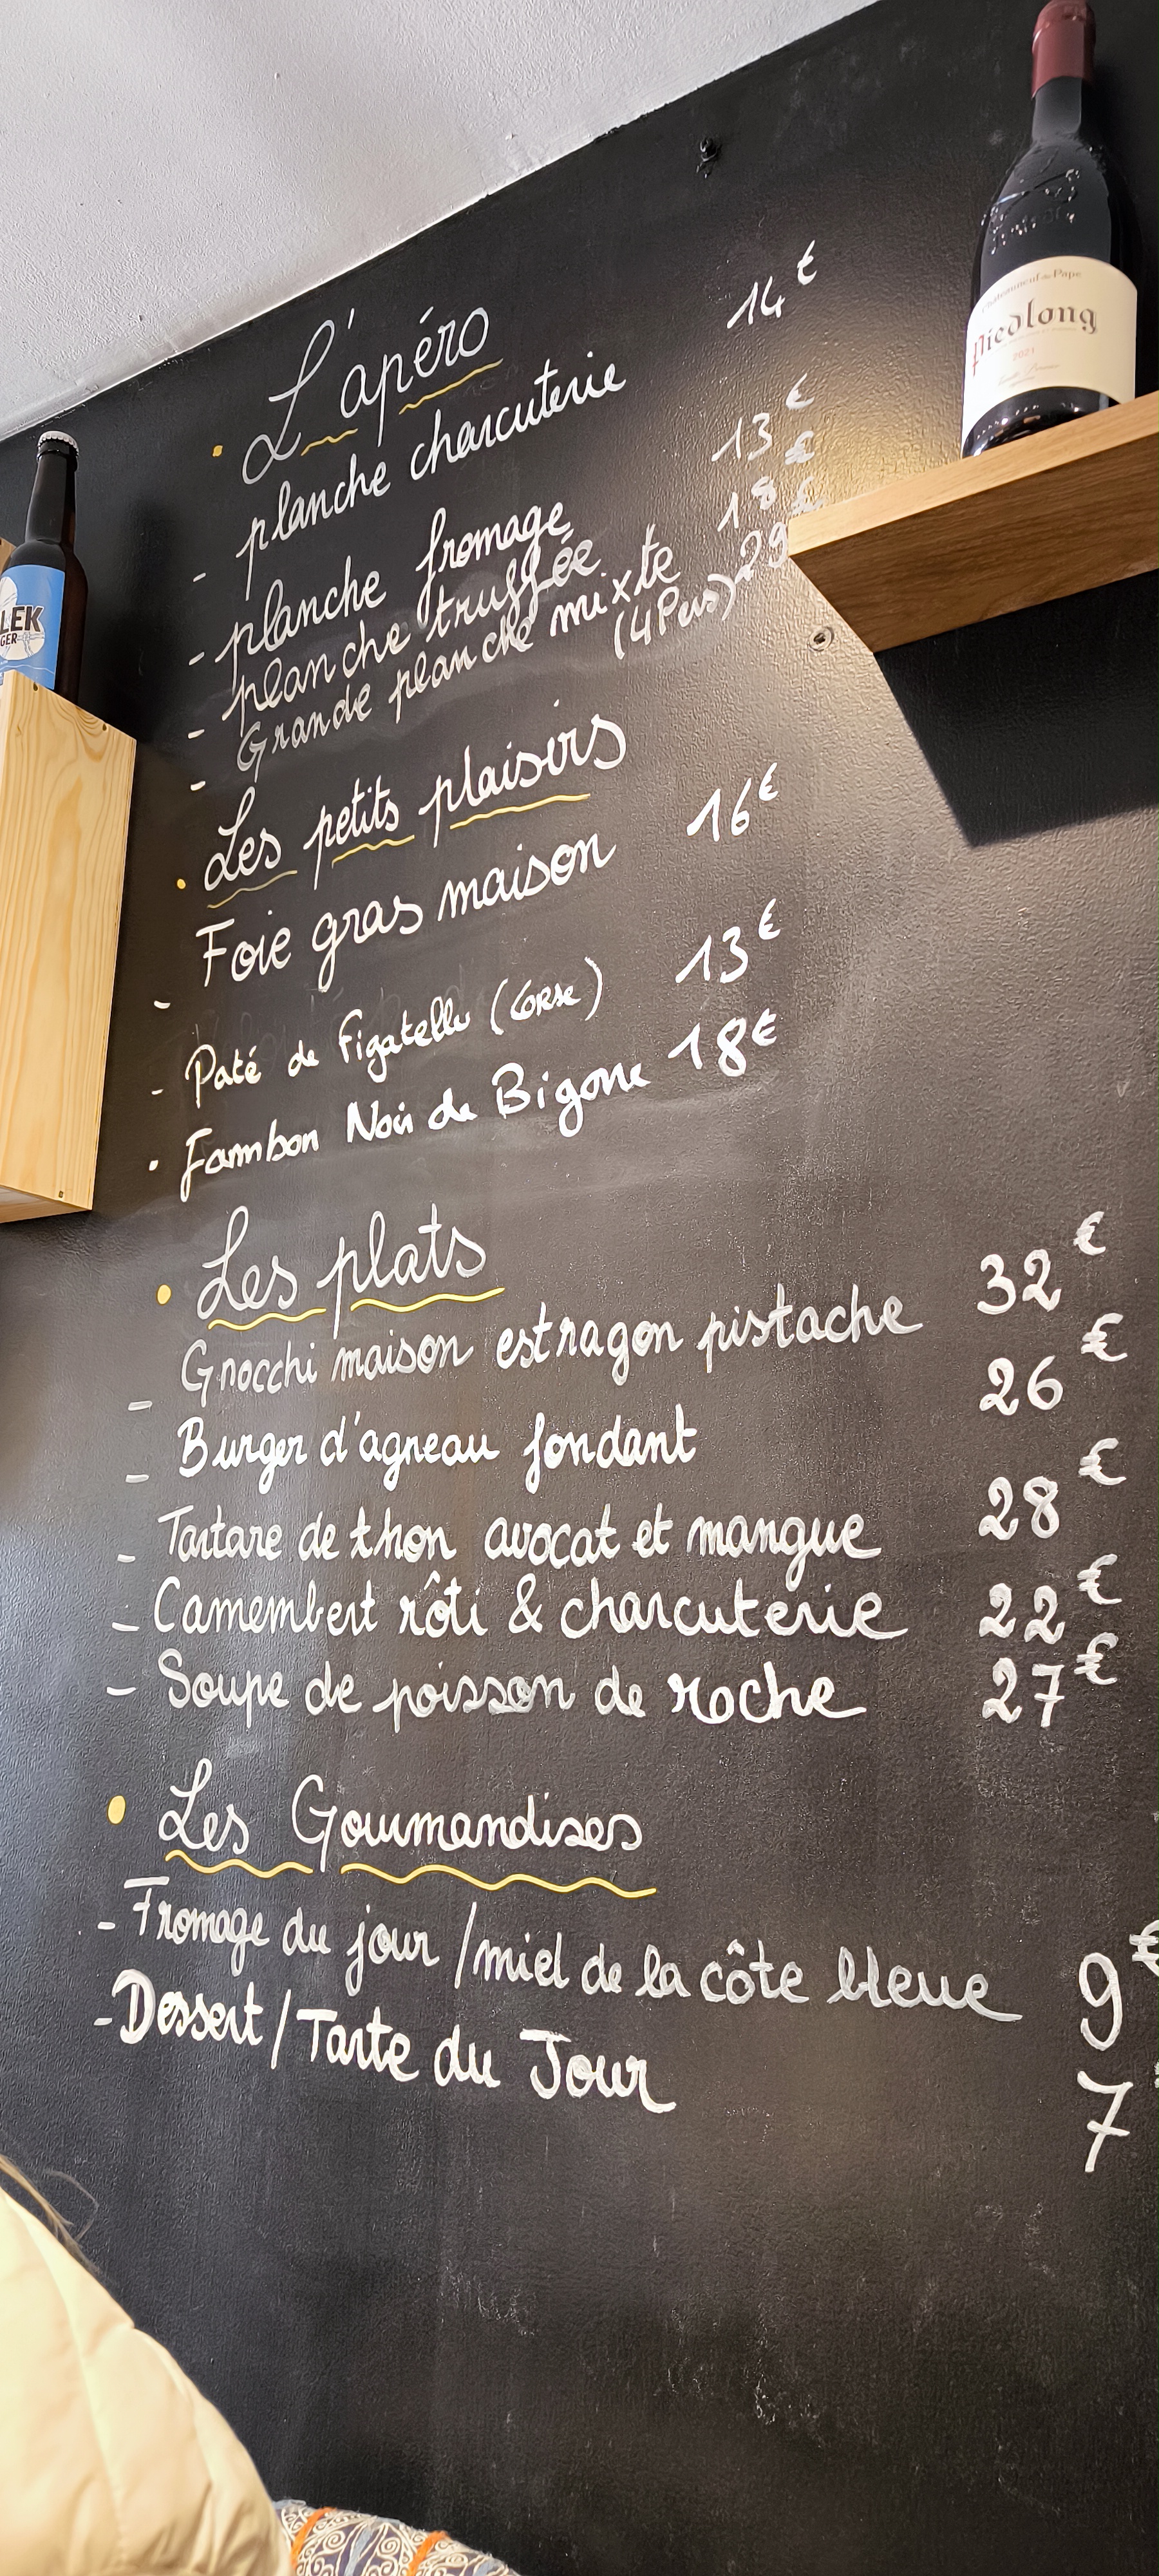 L'apéro
- planche charcuterie 14€
- planche fromage 13€
- planche truffée 18€
- Grande planche mixte 29€
(4 Pers)
Les petits plaisirs
- Foie gras maison 16€
- Paté de Figatellu (Corse) 13€
- Jambon Noir de Bigorre 18€
Les plats
- Gnocchi maison estragon pistache 32€
- Burger d'agneau fondant 26€
- Tartare de thon avocat et mangue 28€
- Camembert rôti & charcuterie 22€
- Soupe de poisson de roche 27€
Les Gourmandises
- Fromage du jour / miel de la côte bleue 9€
- Dessert / Tarte du Jour 7
Châteauneuf-du-Pape
Piedlong
2021
LEK
GER